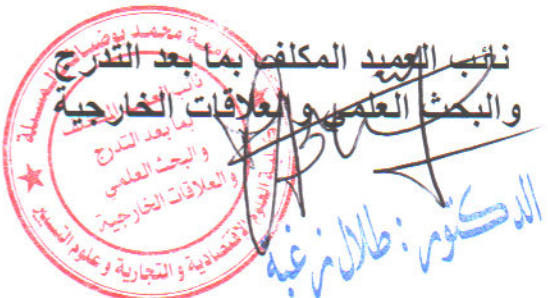 نائب العميد المكلف بما بعد التدرج
والبحث العلمي والعلاقات الخارجية
جامعة محمد بوضياف المسيلة
نائب العميد المكلف
بما بعد التدرج
والبحث العلمي
والعلاقات الخارجية
كلية العلوم الاقتصادية و التجارية و علوم التسيير
الدكتور : طلال زغبة